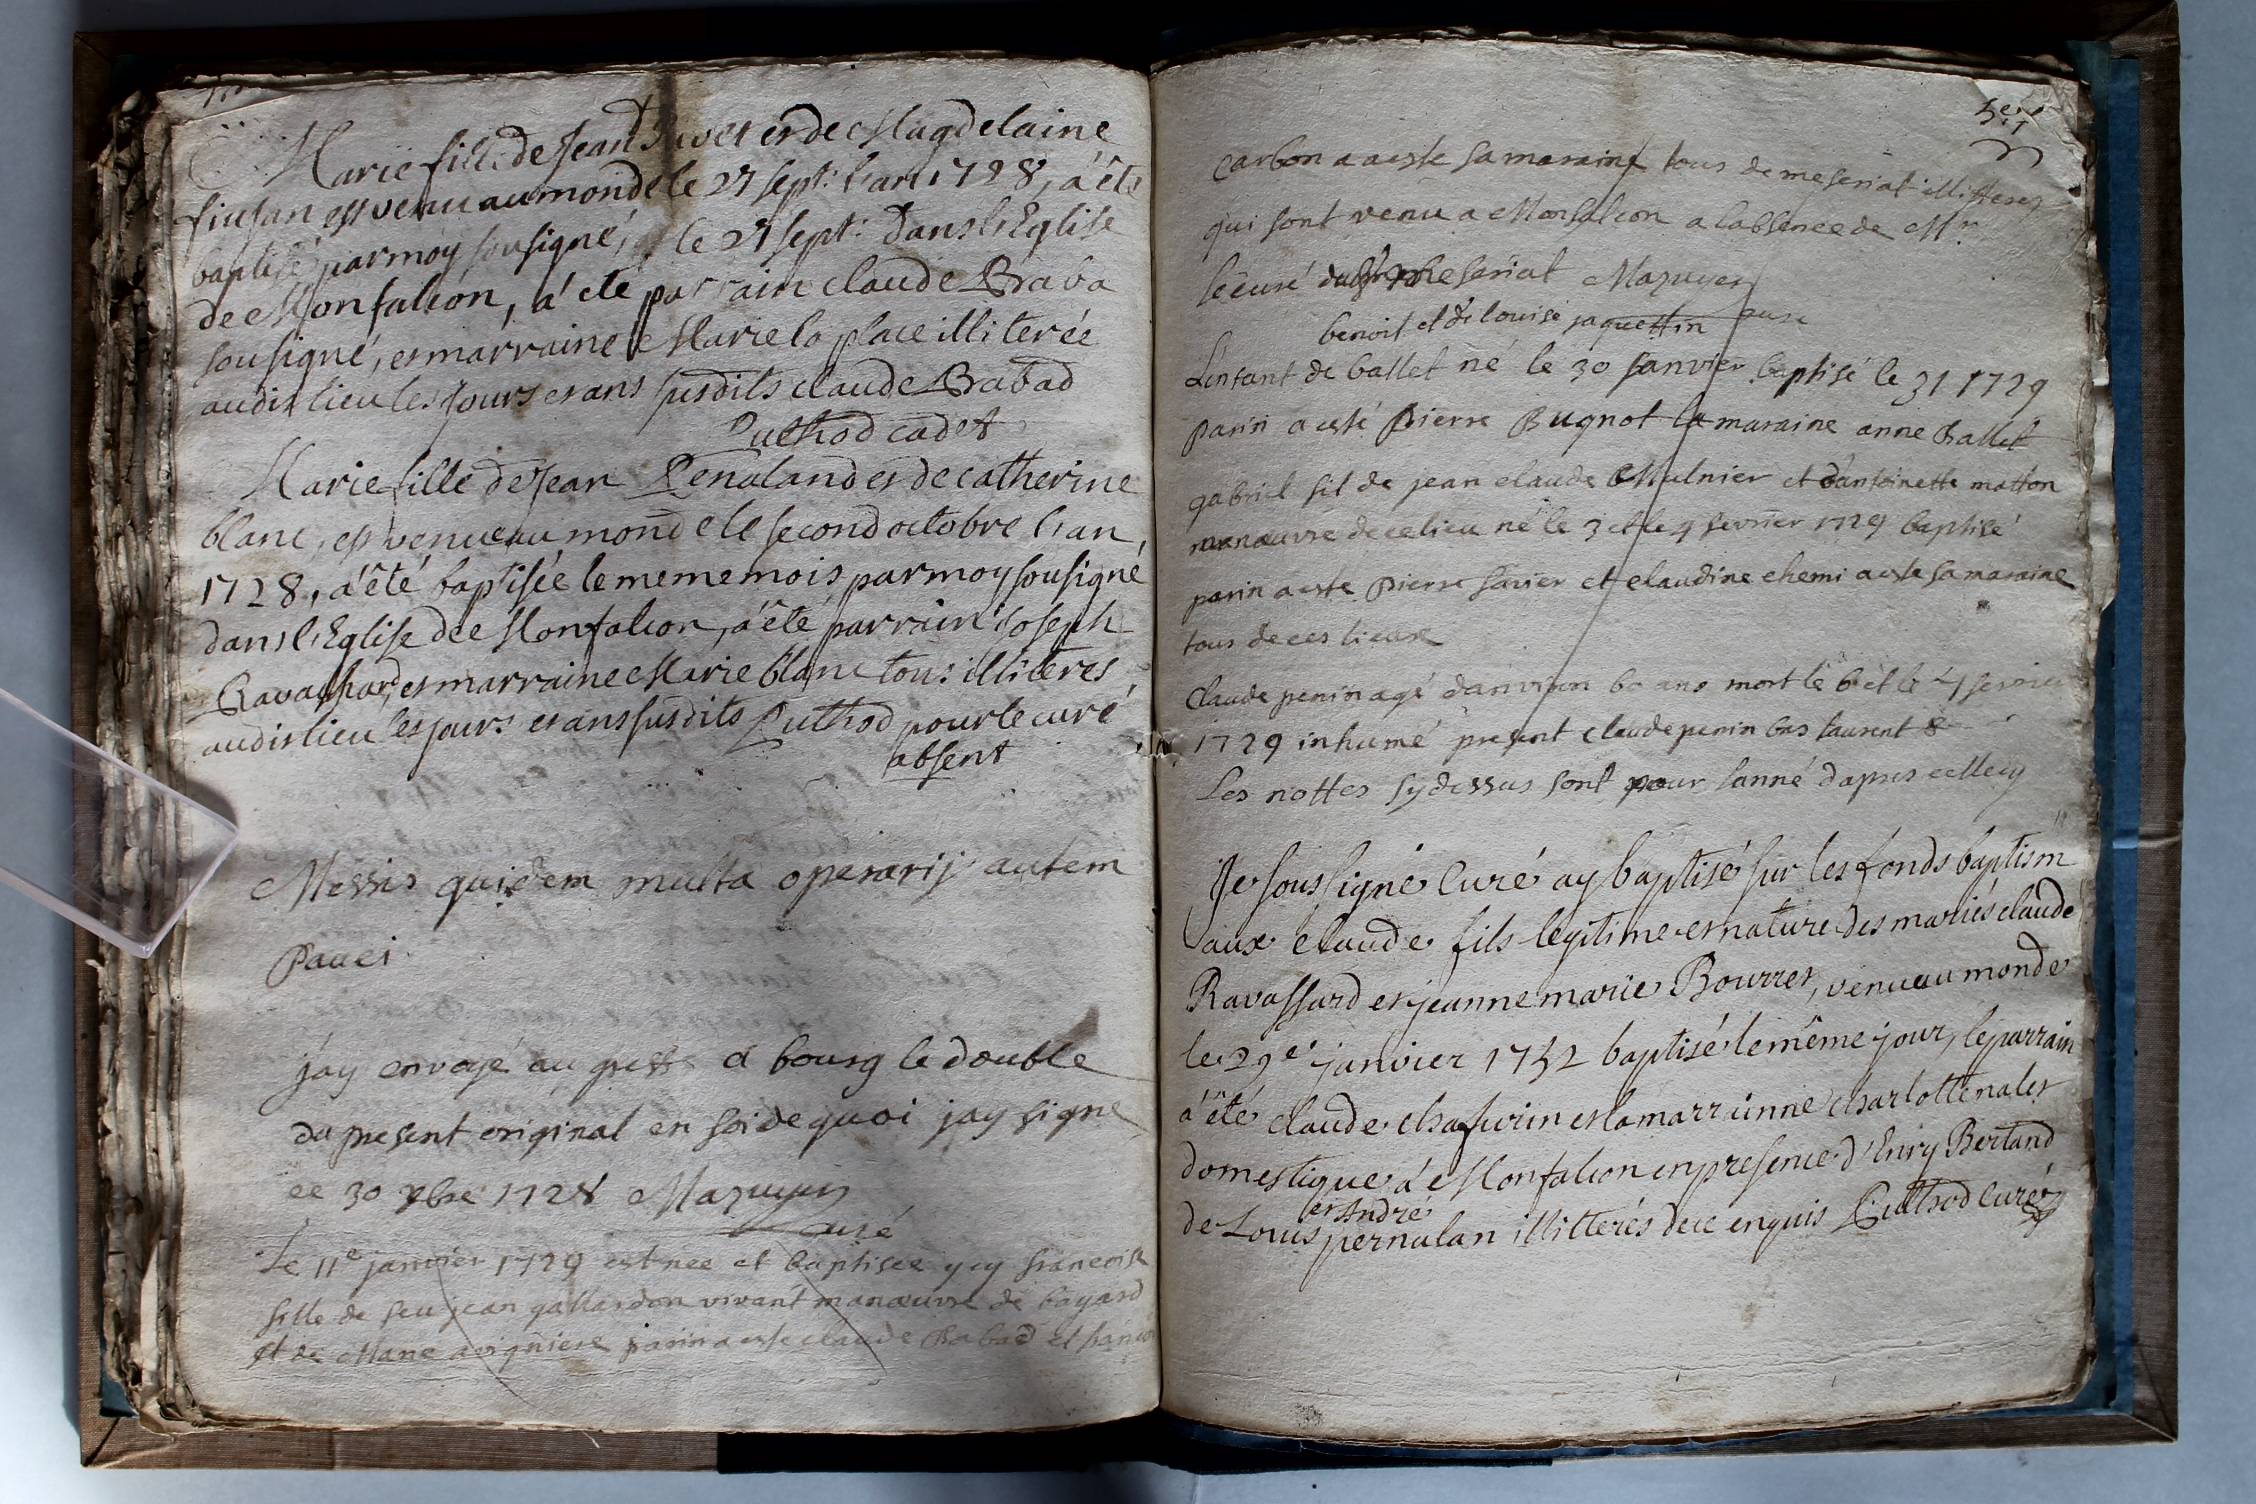 Marie fille de Jean et de Magdelaine
est venu au monde le 27 sept: l'an 1728, a'êté
baptisé par moy sousigné, le 27 sept: dans l'Eglise
de Monfalcon, a'eté parrain claude Braba
sousigné, et marraine Marie la place illiterée
audit lieu les jours et ans susdits claude Brabad
Puthod cadet
Marie fille de Jean Penaland et de catherine
blanc, est venue au monde le second octobre l'an
1728, a'êté baptisée le meme mois par moy sousigné
dans l'Eglise de Monfalcon, a'êté parrain Joseph
Ravashard, et marraine Marie blanc tous illiterés
audit lieu les jours et ans susdits Puthod pour le curé
absent
Messis quidem multa operarij autem
Pauci
jay envoyé au greffe a bourg le double
du present original en foi de quoi jay signe
ce 30 xbre 1728 Mazuyer
curé
Le 11e janvier 1729 est nee et baptisee ycy francoise
fille de feu jean gallardon vivant manœuvre de bayard
et de Marie parin a este claude Rabad et
carbon a aeste sa maraine tous de meseriat illitteres
qui sont venu a Monfalcon a labsence de Mr
le curé meseriat Mazuyer
benoit et de louise jaquettin curé
Lenfant de ballet né le 30 janvier baptisé le 31 1729
parin a esté pierre Bugnot la maraine anne Ballet
gabriel fil de jean claude Mulnier et dantoinette matton
manœuvre de ce lieu né le 3 et le 4 fevrier 1729 baptisé
parin a este pierre favier et claudine chemi a este sa maraine
tous de ces lieux
Claude penin agé danviron 60 ans mort le 6 et le 7 fevrier
1729 inhumé present claude penin bas laurent &
Les nottes sy dessus sont pour lanné dapres cellecy
Je soussigné Curé ay baptisé sur les fonds baptism
aux claude fils legitime et naturel des mariés claude
Ravassard et jeanne marie Bourret, venu au monde
le 29e janvier 1732 baptisé le même jour, le parrain
a'êté claude chafurin et la marrainne charlotte nalet
domestique a' Monfalcon en presence d'Enry Bertand
et André
de Louis pernalan illitterés de ce enquis Puthod Curé